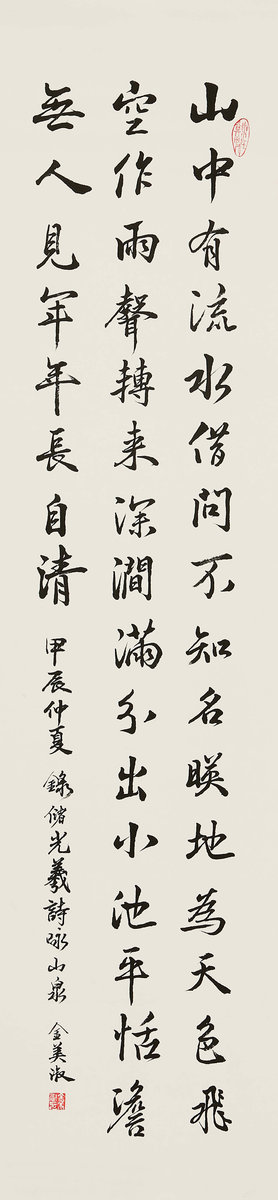 山中有流水借問不知名暎地為天色飛
空作雨聲轉来深澗滿分出小池平恬澹
無人見年年長自清
甲辰仲夏 錄儲光羲詩咏山泉 金美淑